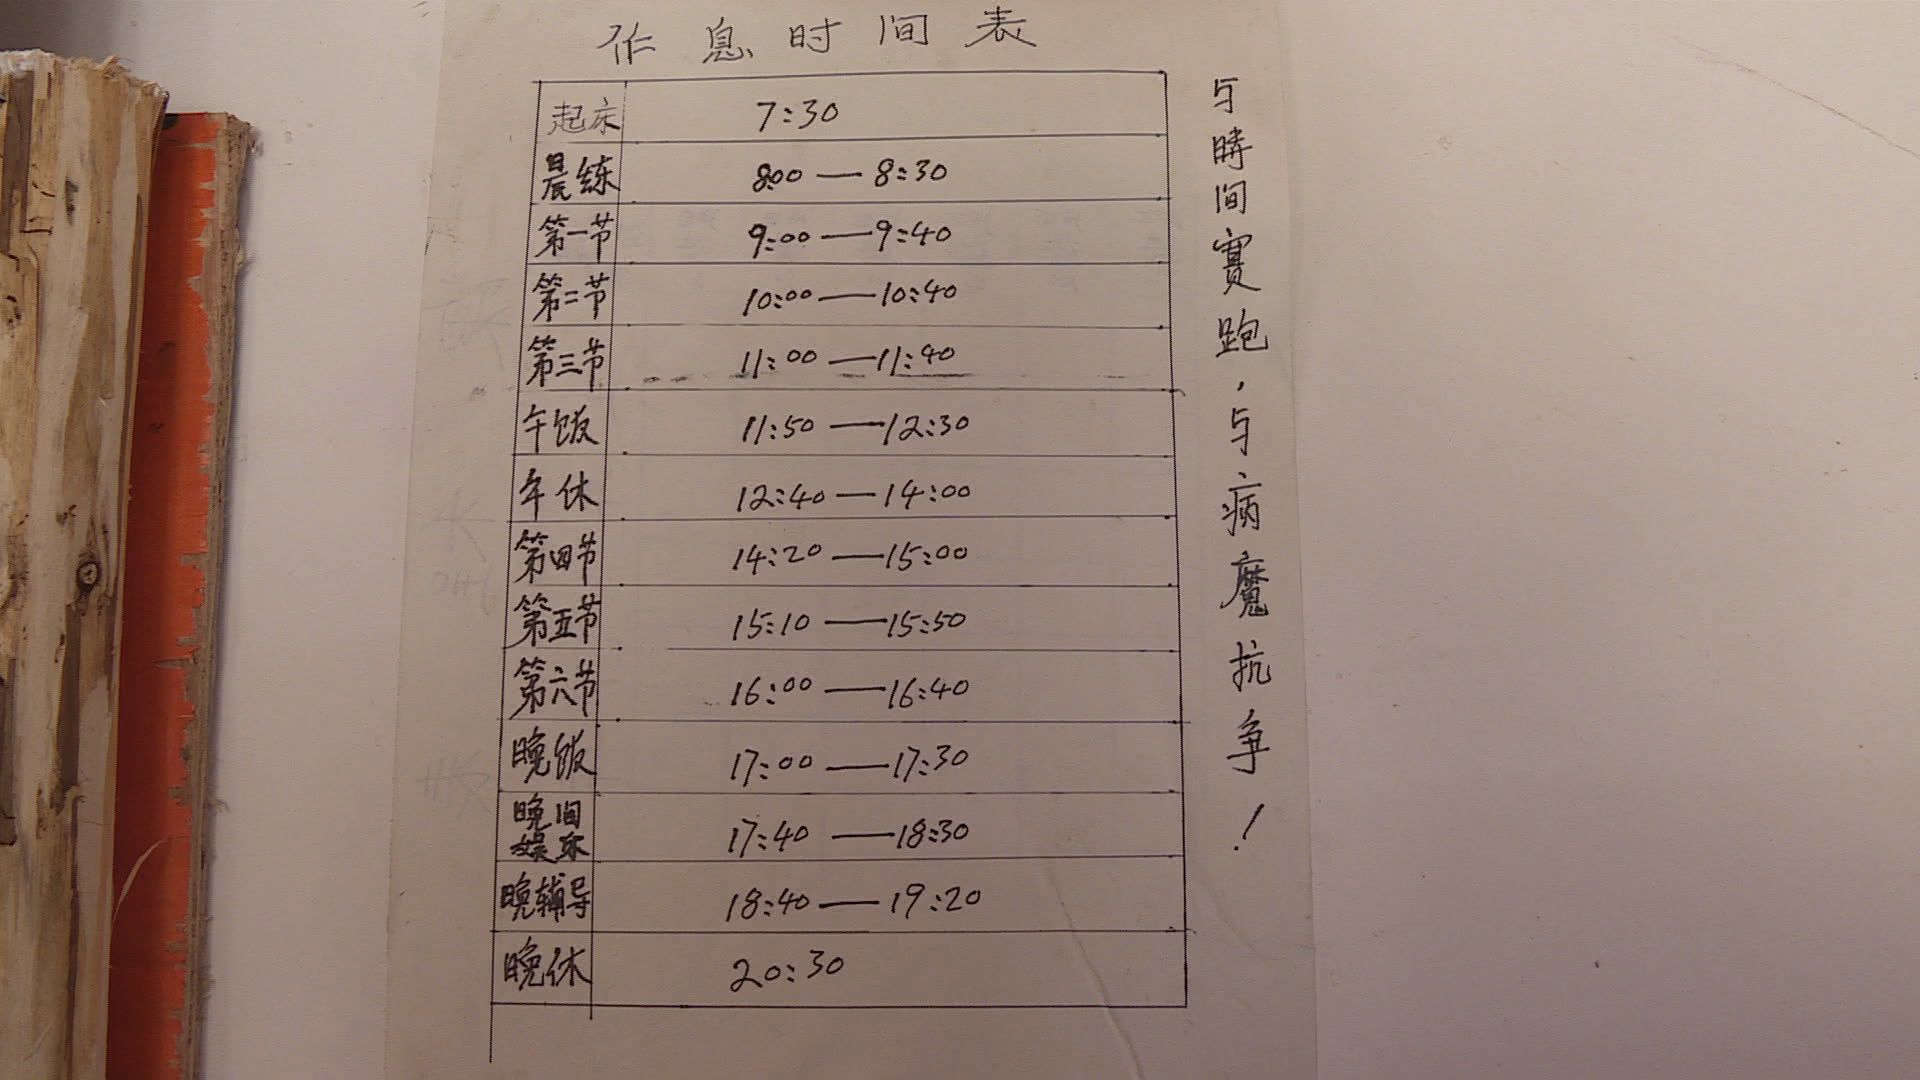 作息时间表
起床 7:30
晨练 8:00—8:30
第一节 9:00—9:40
第二节 10:00—10:40
第三节 11:00—11:40
午饭 11:50—12:30
午休 12:40—14:00
第四节 14:20—15:00
第五节 15:10—15:50
第六节 16:00—16:40
晚饭 17:00—17:30
晚间娱乐 17:40—18:30
晚辅导 18:40—19:20
晚休 20:30
与時间賽跑，与病魔抗争！